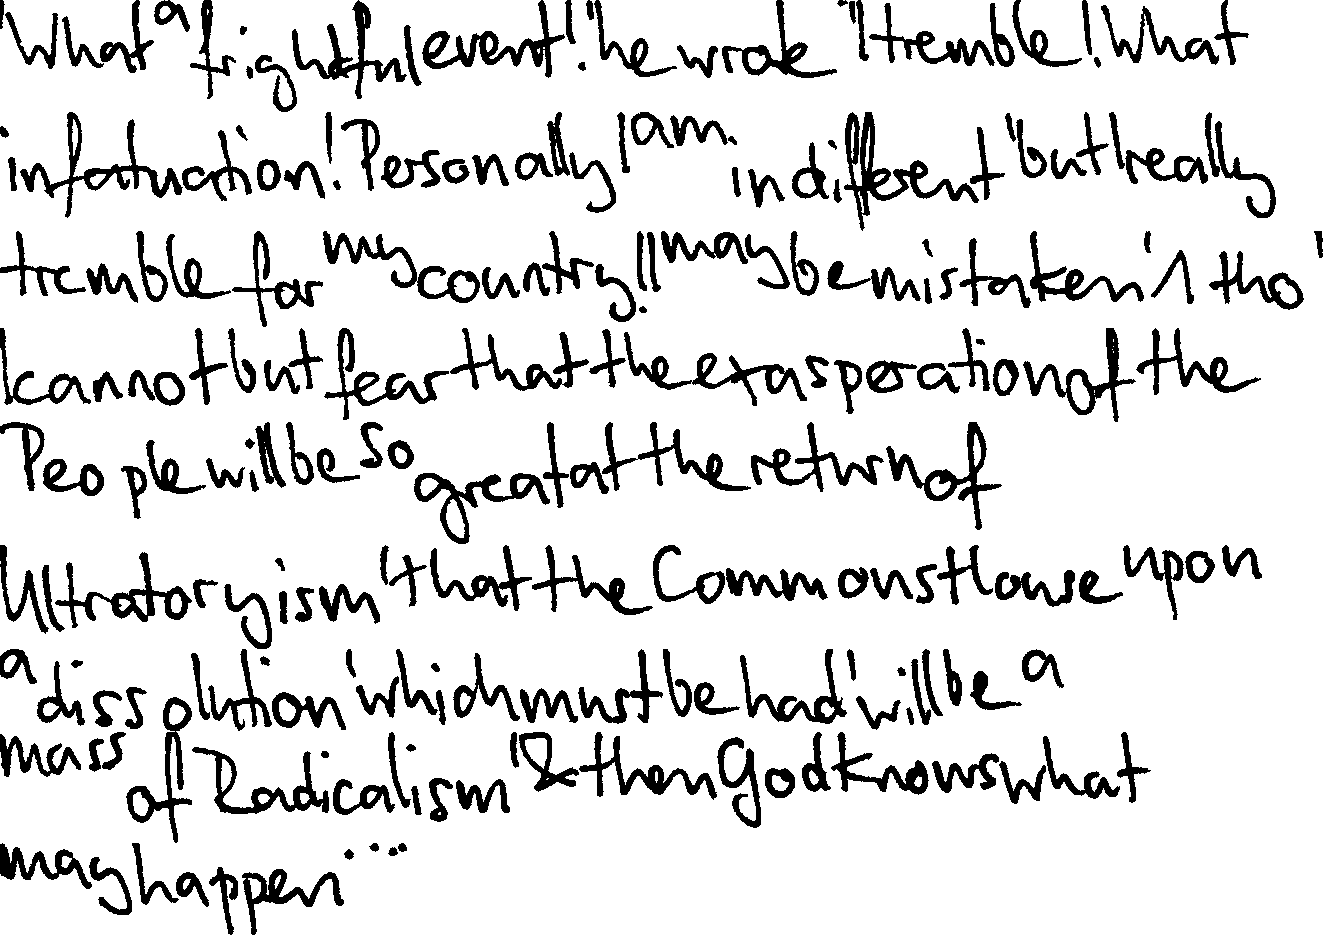 "What a frightful event!" he wrote "I tremble! What
infatuation! Personally I am indifferent, but I really
tremble for my country. I may be mistaken, tho'
I cannot but fear that the exasperation of the
People will be so great at the return of
Ultratoryism, that the Commons House upon
a dissolution, which must be had, will be a
mass of Radicalism, & then God knows what
may happen ...